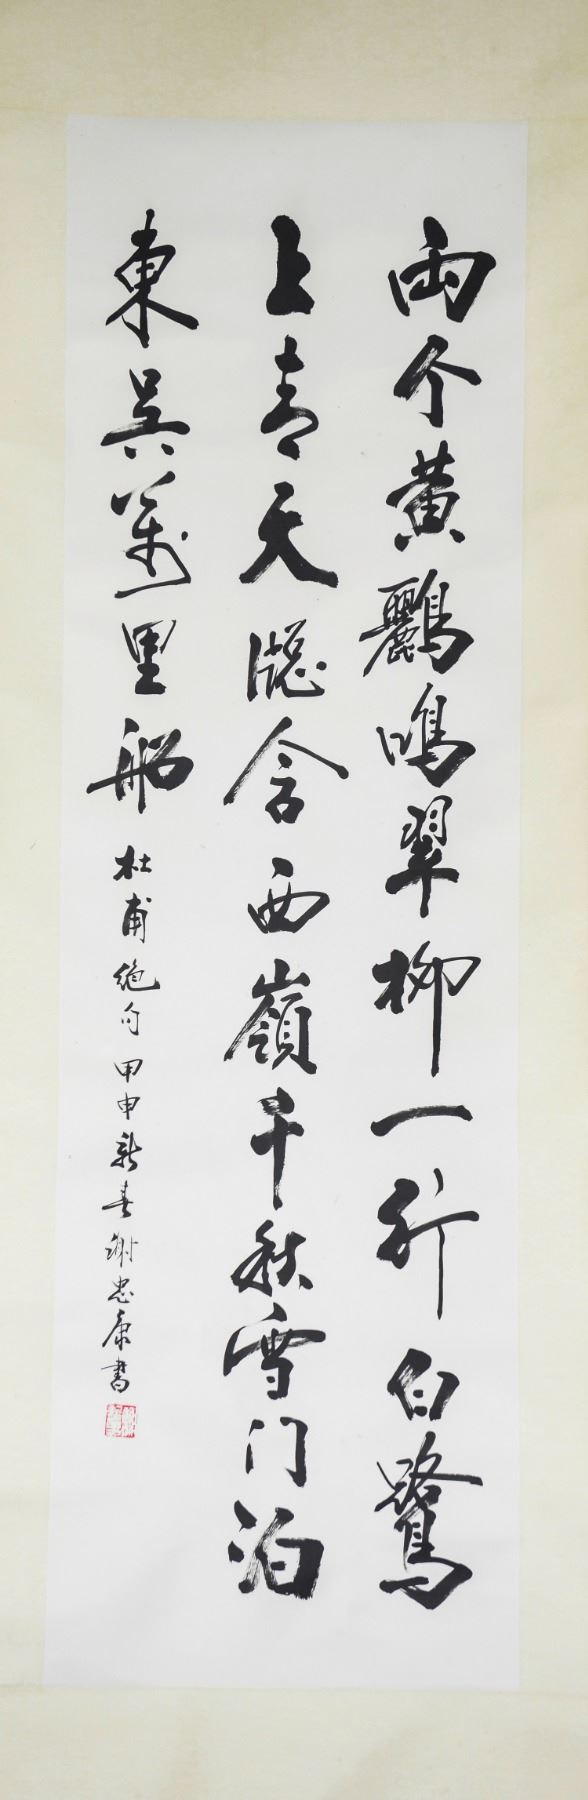 兩个黄鸝鳴翠柳一行白鷺
上青天窓含西嶺千秋雪门泊
東吴萬里船 杜甫絶句 甲申新春謝忠康書